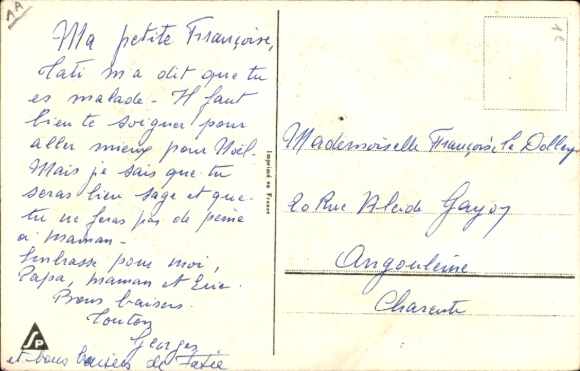 AA
Ma petite Françoise,
Tati m a dit que tu
es malade - Il faut
bien te soigner pour
aller mieux pour Noël.
Mais je sais que tu
seras bien sage et que
tu ne feras pas de peine
à maman -
Embrasse pour moi,
Papa, maman et Eric.
Bons baisers.
Tonton
Georges
et bons baisers de Tatie
SP
Imprimé en France
Mademoiselle Françoise le Dolley
20 Rue Gayoy
Angoulême
Charente